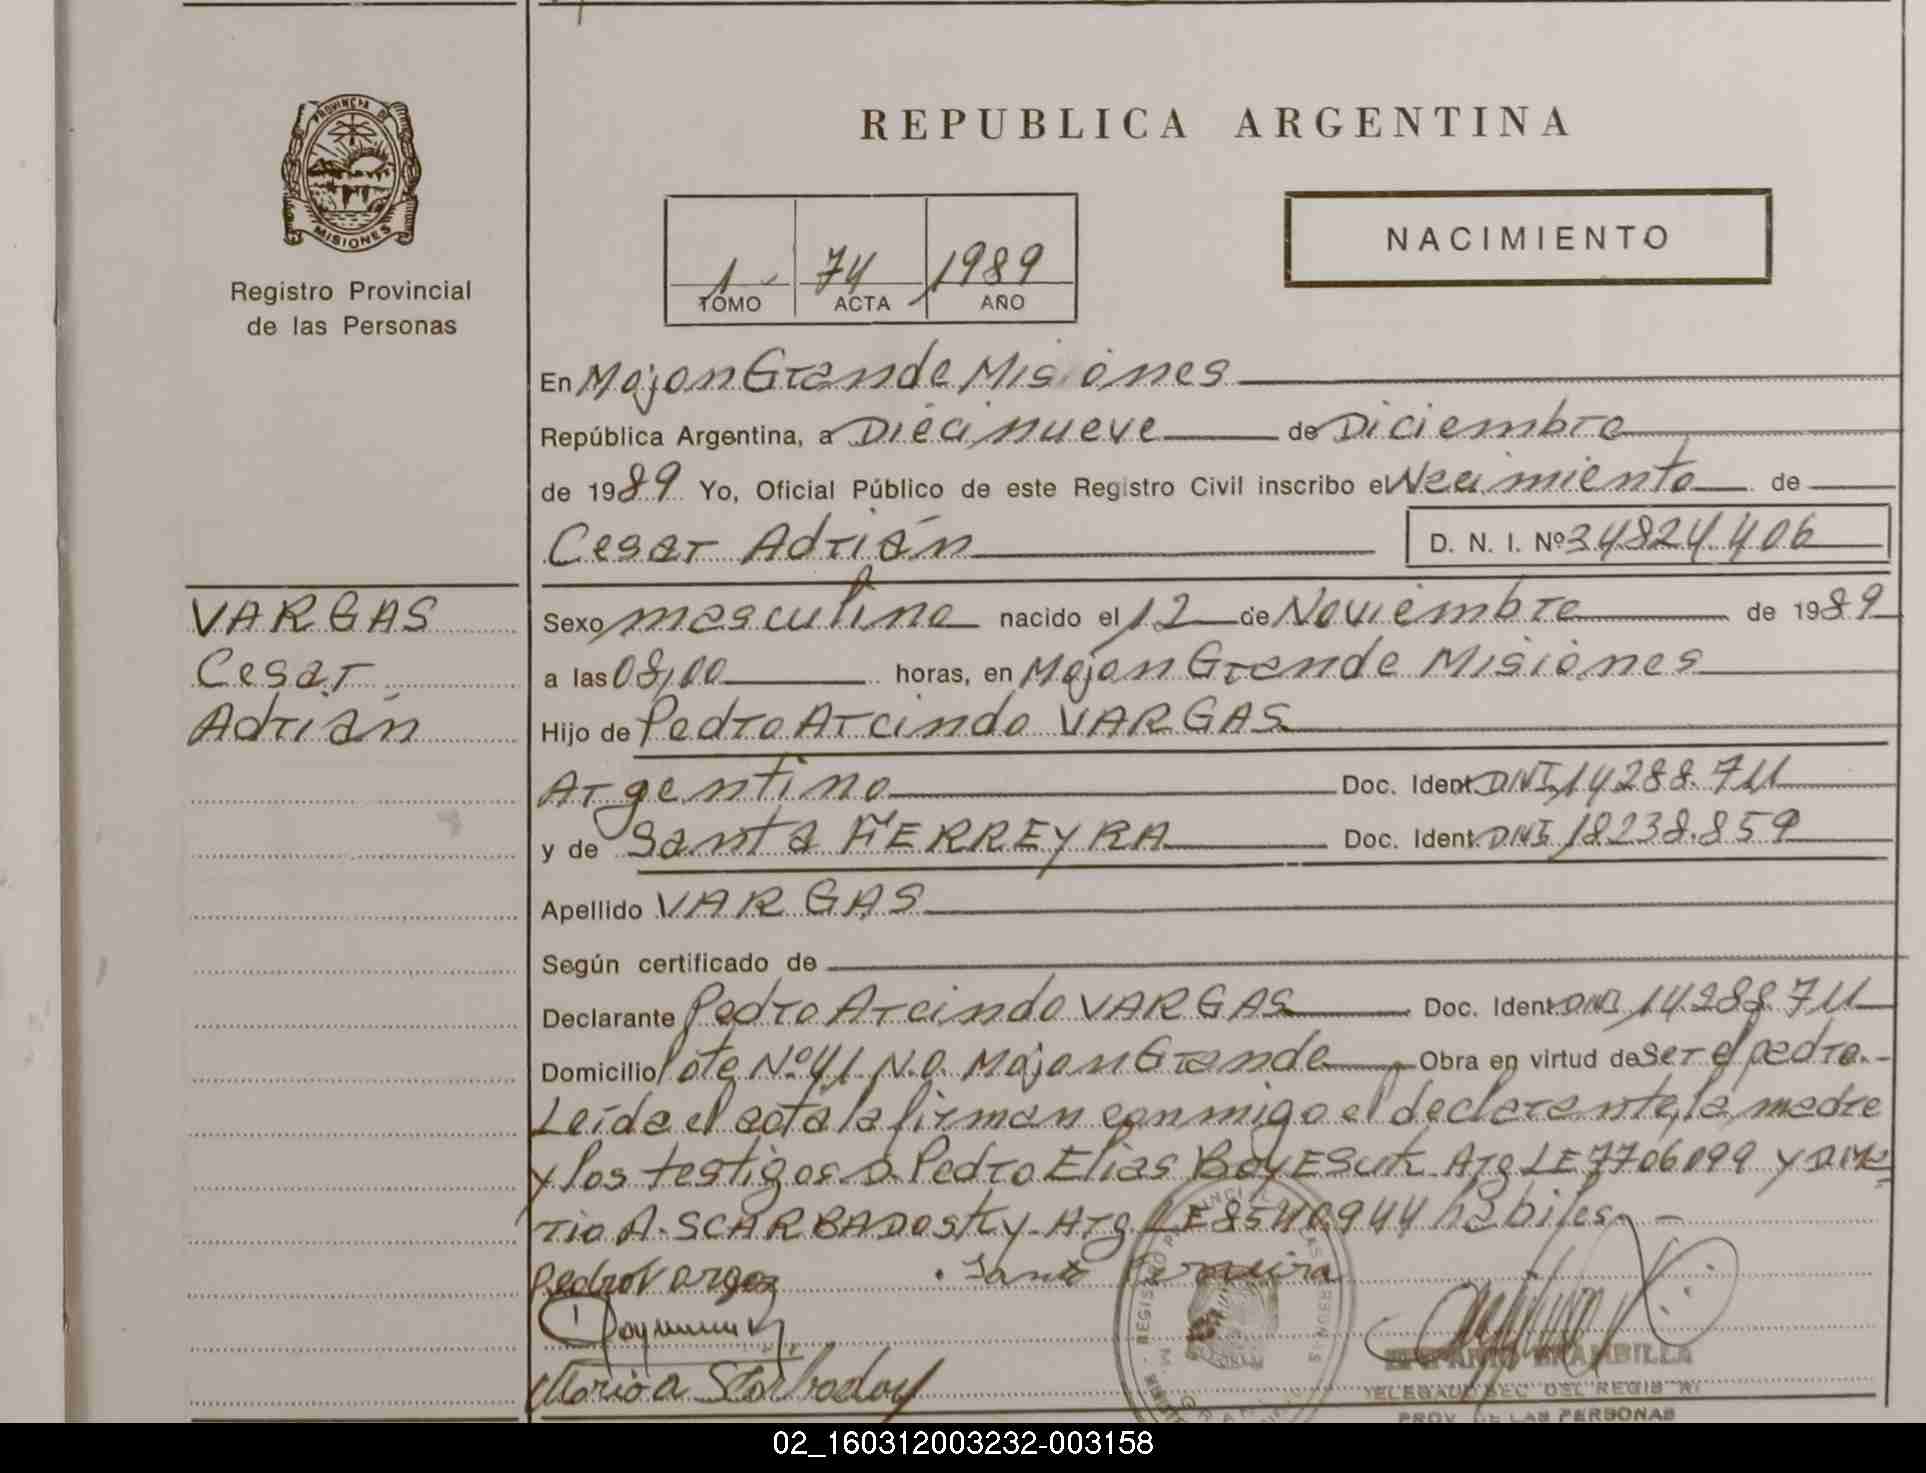 PROVINCIA DE
MISIONES
Registro Provincial
de las Personas
REPUBLICA ARGENTINA
NACIMIENTO
1 74 1989
TOMO ACTA AÑO
En Mojon Grande Misiones
República Argentina, a Diecinueve de Diciembre
de 1989 Yo, Oficial Público de este Registro Civil inscribo el Nacimiento de
Cesar Adrián D. N. I. Nº 34824.406
VARGAS
Cesar
Adrián
Sexo masculino nacido el 12 de Noviembre de 1989
a las 08,00 horas, en Mojon Grande Misiones
Hijo de Pedro Arcindo VARGAS
Argentino Doc. Ident. DNI 14288.711
y de Santa FERREYRA Doc. Ident. DNI 18238.859
Apellido VARGAS
Según certificado de
Declarante Pedro Arcindo VARGAS Doc. Ident. DNI 14288711
Domicilio lote Nº 41 N.O. Mojon Grande Obra en virtud de ser el padre.-
Leída el acta la firman conmigo el declarante, la madre
y los testigos D. Pedro Elias Arg LE 7706099 y
A. Arg. LE 8540944 hábiles.-
Pedro Vargas
REGISTRO PROVINCIAL DE LAS PERSONAS
BRAMBILLA
DEL REGIS
PROV. DE LAS PERSONAS
02_160312003232-003158